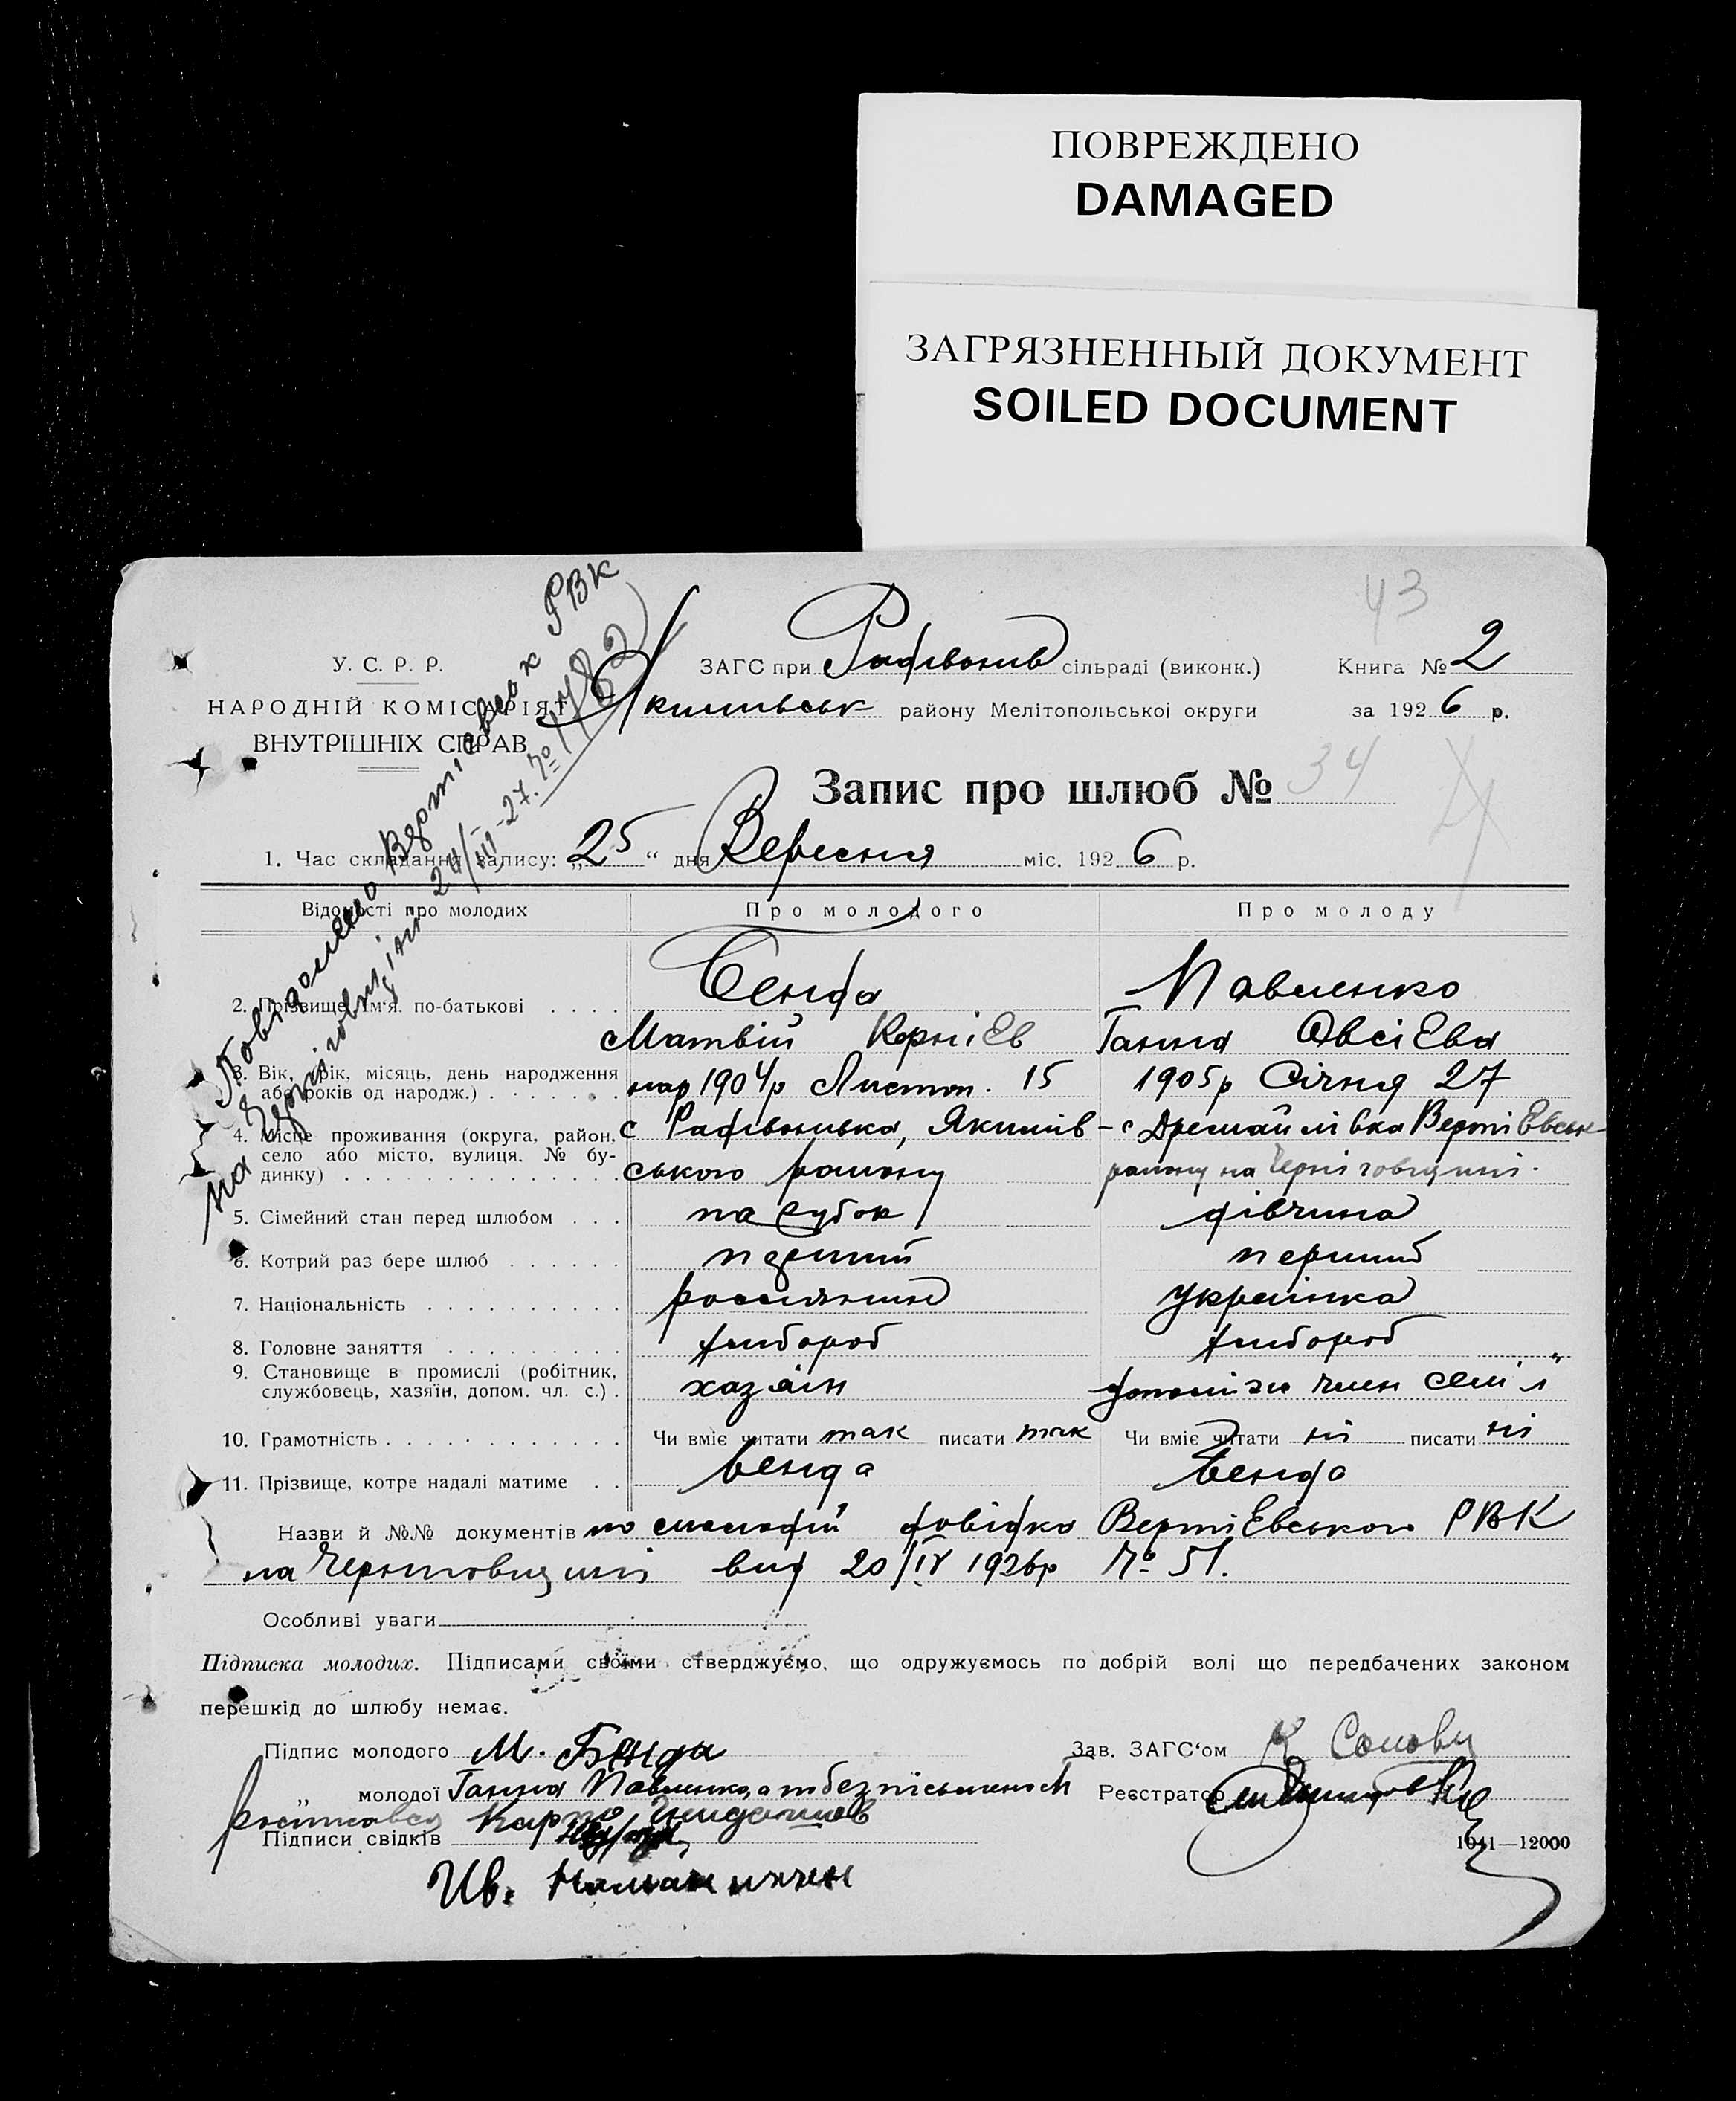 ПОВРЕЖДЕНО
DAMAGED
ЗАГРЯЗНЕННЫЙ ДОКУМЕНТ
SOILED DOCUMENT
43
У. С. Р. Р.
НАРОДНІЙ КОМІСАРІЯТ
ВНУТРІШНІХ СПРАВ
ЗАГС при Радівонів сільраді (виконк.)
Книга № 2
Якимівськ району Мелітопольської округи
за 1926 р.
Запис про шлюб № 34
1. Час складання запису: „25“ дня Вересня міс. 1926 р.
Повідомлено Вертіевськ РВК
на Черніговщині 24/III-27. № 1782
Відомості про молодих
Про молодого
Про молоду
2. Прізвище, ім'я по-батькові
Бенда
Павленко
Матвій Корнієв
Ганна Овсієва
3. Вік, (рік, місяць, день народження або років од народж.)
нар 1904р Листоп. 15
1905р Січня 27
4. Місце проживання (округа, район, село або місто, вулиця. № будинку)
с Радівонівка, Якимів-
ського району
с Дремайлівка Вертіевськ
району на Черніговщині.
5. Сімейний стан перед шлюбом
парубок
дівчина
6. Котрий раз бере шлюб
перший
перший
7. Національність
россиянин
українка
8. Головне заняття
хлібороб
хлібороб
9. Становище в промислі (робітник, службовець, хазяїн, допом. чл. с.)
хазяін
допоміж член семї
10. Грамотність
Чи вміє читати так писати так
Чи вміє читати ні писати ні
11. Прізвище, котре надалі матиме
Бенда
Бенда
Назви й №№ документів по молодій довідка Вертіевського РВК
на Черниговщині вид 20/IV 1926р № 51.
Особливі уваги
Підписка молодих. Підписами своїми стверджуємо, що одружуємось по добрій волі що передбачених законом
перешкід до шлюбу немає.
Підпис молодого М. Бенда
Зав. ЗАГС'ом
„ молодої Ганна Павленко, а
Реєстратор
Карпо
Підписи свідків
1041—12000
Ив.